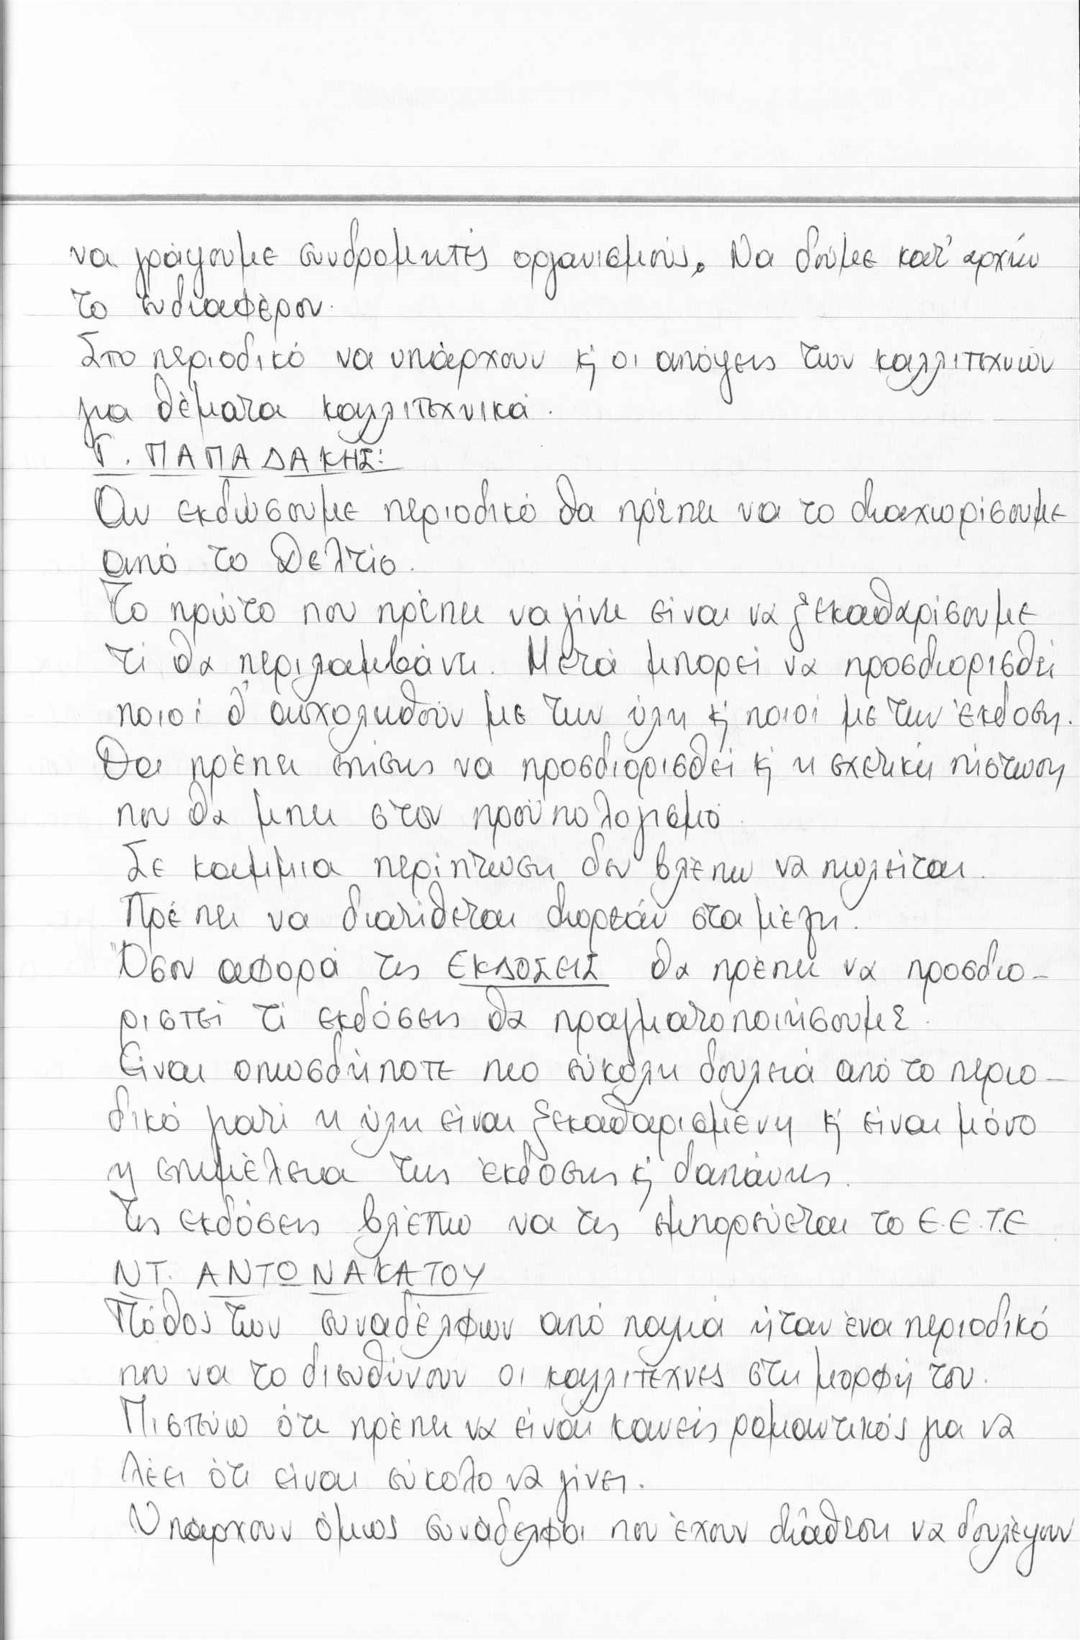 να γράψουμε συνδρομητές οργανισμούς. Να δούμε κατ' αρχήν
το ενδιαφέρον.
Στο περιοδικό να υπάρχουν κ' οι απόψεις των καλλιτεχνών
για θέματα καλλιτεχνικά.
Γ. ΠΑΠΑΔΑΚΗΣ:
Αν εκδώσουμε περιοδικό θα πρέπει να το διαχωρίσουμε
από το Δελτίο.
Το πρώτο που πρέπει να γίνει είναι να ξεκαθαρίσουμε
τί θα περιλαμβάνει. Μετά μπορεί να προσδιορισθεί
ποιοί θ' ασχοληθούν με την ύλη κ' ποιοί με την έκδοση.
Θα πρέπει επίσης να προσδιορισθεί κ' η σχετική πίστωση
που θα μπει στον προϋπολογισμό.
Σε καμμιά περίπτωση δεν βλέπω να πωλείται.
Πρέπει να διατίθεται δωρεάν στα μέλη.
Όσον αφορά τις ΕΚΔΟΣΕΙΣ θα πρέπει να προσδιο-
ριστεί τί εκδόσεις θα πραγματοποιήσουμε.
Είναι οπωσδήποτε πιο εύκολη δουλειά από το περιο-
δικό γιατί η ύλη είναι ξεκαθαρισμένη κ' είναι μόνο
η επιμέλεια της έκδοσης κ' δαπάνης.
Τις εκδόσεις βλέπω να τις εμπορεύεται το Ε.Ε.Τ.Ε
ΝΤ. ΑΝΤΩΝΑΚΑΤΟΥ
Πόθος των συναδέλφων από παλιά ήταν ένα περιοδικό
που να το διευθύνουν οι καλλιτέχνες στη μορφή του.
Πιστεύω ότι πρέπει να είναι κανείς ρομαντικός για να
λέει ότι είναι εύκολο να γίνει.
Υπάρχουν όμως συνάδελφοι που έχουν διάθεση να δουλέψουν